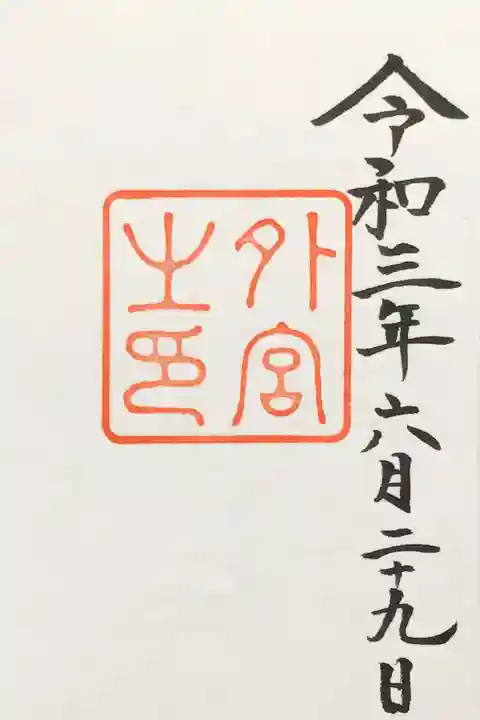 令和三年六月二十九日
外宮
之印